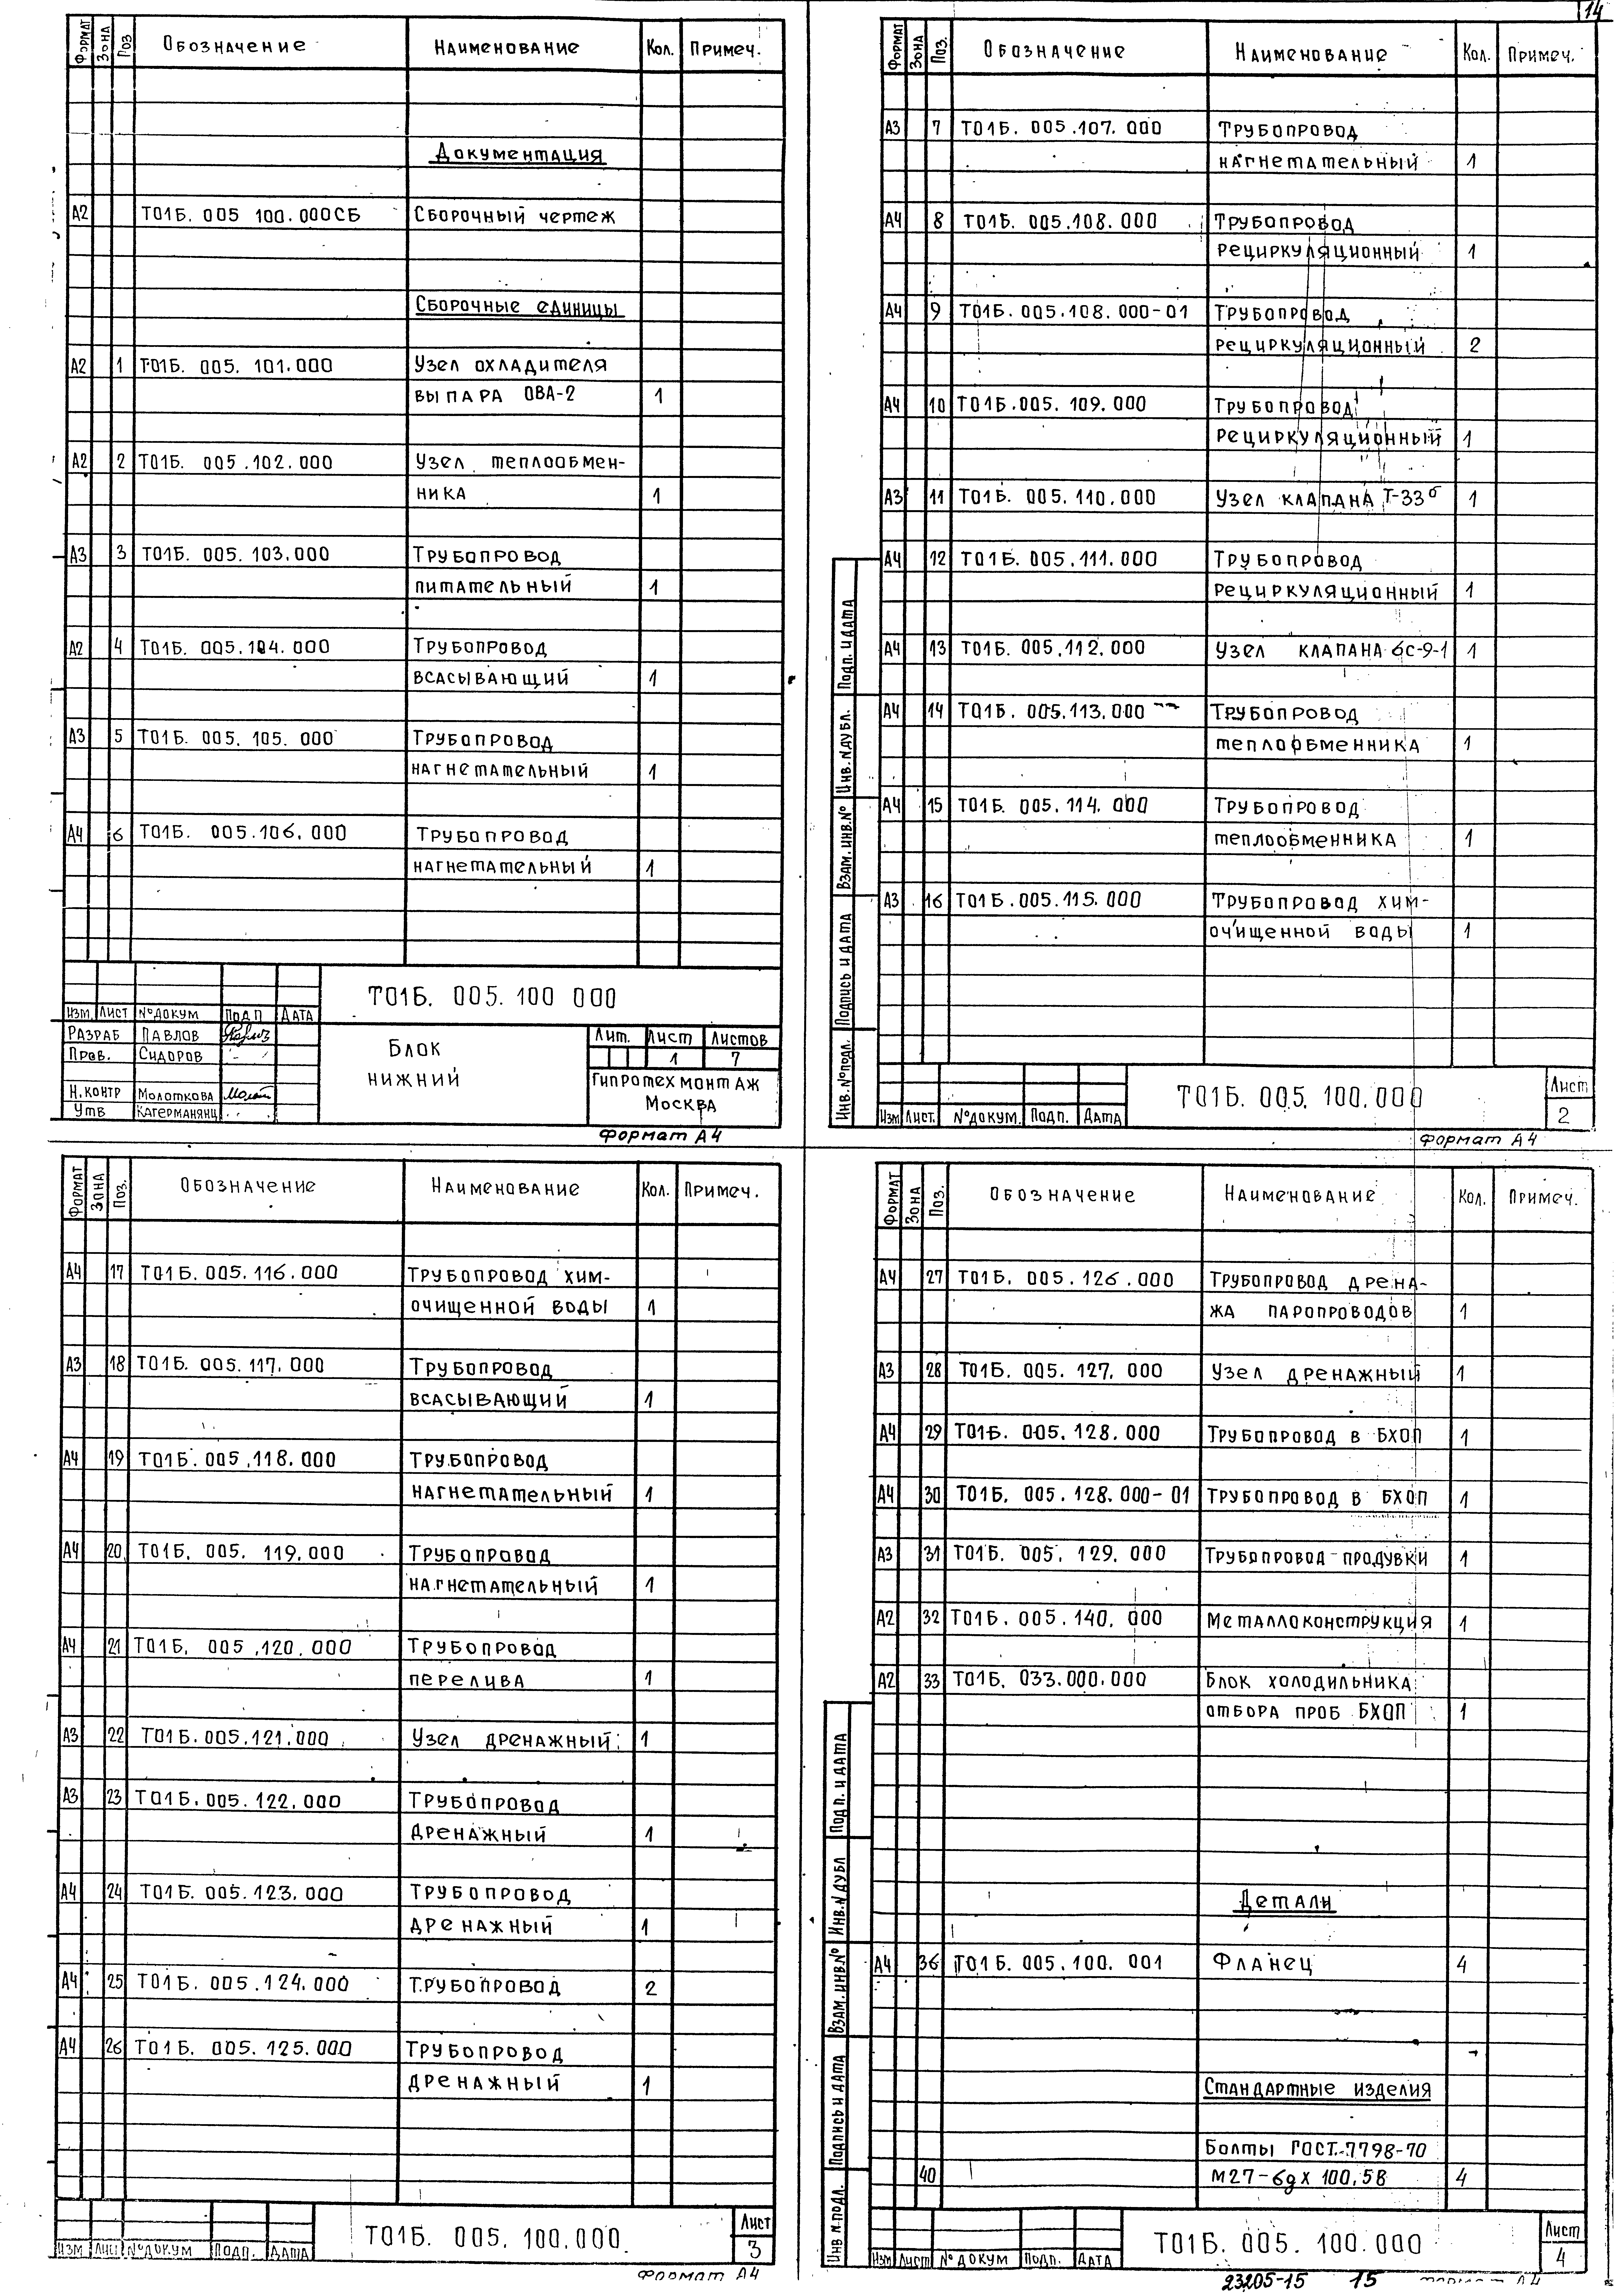 14
Формат Зона Поз Обозначение Наименование Кол. Примеч.
Документация
А2 Т01Б. 005 100.000СБ Сборочный чертеж
Сборочные единицы
А2 1 Т01Б. 005. 101.000 Узел охладителя
выпара ОВА-2 1
А2 2 Т01Б. 005.102.000 Узел теплообмен-
ника 1
А3 3 Т01Б. 005.103.000 Трубопровод
питательный 1
А2 4 Т01Б. 005.104.000 Трубопровод
всасывающий 1
А3 5 Т01Б. 005. 105.000 Трубопровод
нагнетательный 1
А4 6 Т01Б. 005.106.000 Трубопровод
нагнетательный 1
Т01Б. 005. 100 000
Изм. Лист №докум Подп Дата
Разраб Павлов
Пров. Сидоров
Н.контр Молоткова
Утв Кагерманянц
Блок
нижний
Лит. Лист Листов
1 7
Гипротехмонтаж
Москва
Формат А4
Формат Зона Поз. Обозначение Наименование Кол. Примеч.
А3 7 Т01Б. 005.107.000 Трубопровод
нагнетательный 1
А4 8 Т01Б. 005.108.000 Трубопровод
рециркуляционный 1
А4 9 Т01Б. 005.108.000-01 Трубопровод
рециркуляционный 2
А4 10 Т01Б.005.109.000 Трубопровод
рециркуляционный 1
А3 11 Т01Б. 005.110.000 Узел клапана Т-33б 1
А4 12 Т01Б. 005.111.000 Трубопровод
рециркуляционный 1
А4 13 Т01Б. 005.112.000 Узел клапана 6с-9-1 1
А4 14 Т01Б. 005.113.000 Трубопровод
теплообменника 1
А4 15 Т01Б. 005.114.000 Трубопровод
теплообменника 1
А3 16 Т01Б.005.115.000 Трубопровод хим-
очищенной воды 1
Инв.№подл. Подпись и дата Взам.инв.№ Инв.№дубл. Подп. и дата
Изм Лист. №докум. Подп. Дата
Т01Б. 005. 100.000
Лист
2
Формат А4
Формат Зона Поз. Обозначение Наименование Кол. Примеч.
А4 17 Т01Б.005.116.000 Трубопровод хим-
очищенной воды 1
А3 18 Т01Б. 005.117.000 Трубопровод
всасывающий 1
А4 19 Т01Б.005.118.000 Трубопровод
нагнетательный 1
А4 20 Т01Б. 005. 119.000 Трубопровод
нагнетательный 1
А4 21 Т01Б. 005.120.000 Трубопровод
перелива 1
А3 22 Т01Б.005.121.000 Узел дренажный 1
А3 23 Т01Б.005.122.000 Трубопровод
дренажный 1
А4 24 Т01Б. 005.123.000 Трубопровод
дренажный 1
А4 25 Т01Б. 005.124.000 Трубопровод 2
А4 26 Т01Б. 005.125.000 Трубопровод
дренажный 1
Изм Лист №докум Подп. Дата
Т01Б. 005. 100.000.
Лист
3
Формат А4
Формат Зона Поз. Обозначение Наименование Кол. Примеч.
А4 27 Т01Б. 005.126.000 Трубопровод дрена-
жа паропроводов 1
А3 28 Т01Б. 005. 127.000 Узел дренажный 1
А4 29 Т01Б. 005.128.000 Трубопровод в БХОП 1
А4 30 Т01Б. 005.128.000-01 Трубопровод в БХОП 1
А3 31 Т01Б. 005. 129.000 Трубопровод продувки 1
А2 32 Т01Б. 005.140.000 Металлоконструкция 1
А2 33 Т01Б. 033.000.000 Блок холодильника
отбора проб БХОП 1
Детали
А4 36 Т01Б. 005.100.001 Фланец 4
Стандартные изделия
Болты ГОСТ.7798-70
40 М27-6gх100.58 4
Инв №подл. Подпись и дата Взам.инв.№ Инв.№дубл Подп. и дата
Изм Лист №докум Подп. Дата
Т01Б. 005. 100.000
Лист
4
23205-15 15 Формат А4